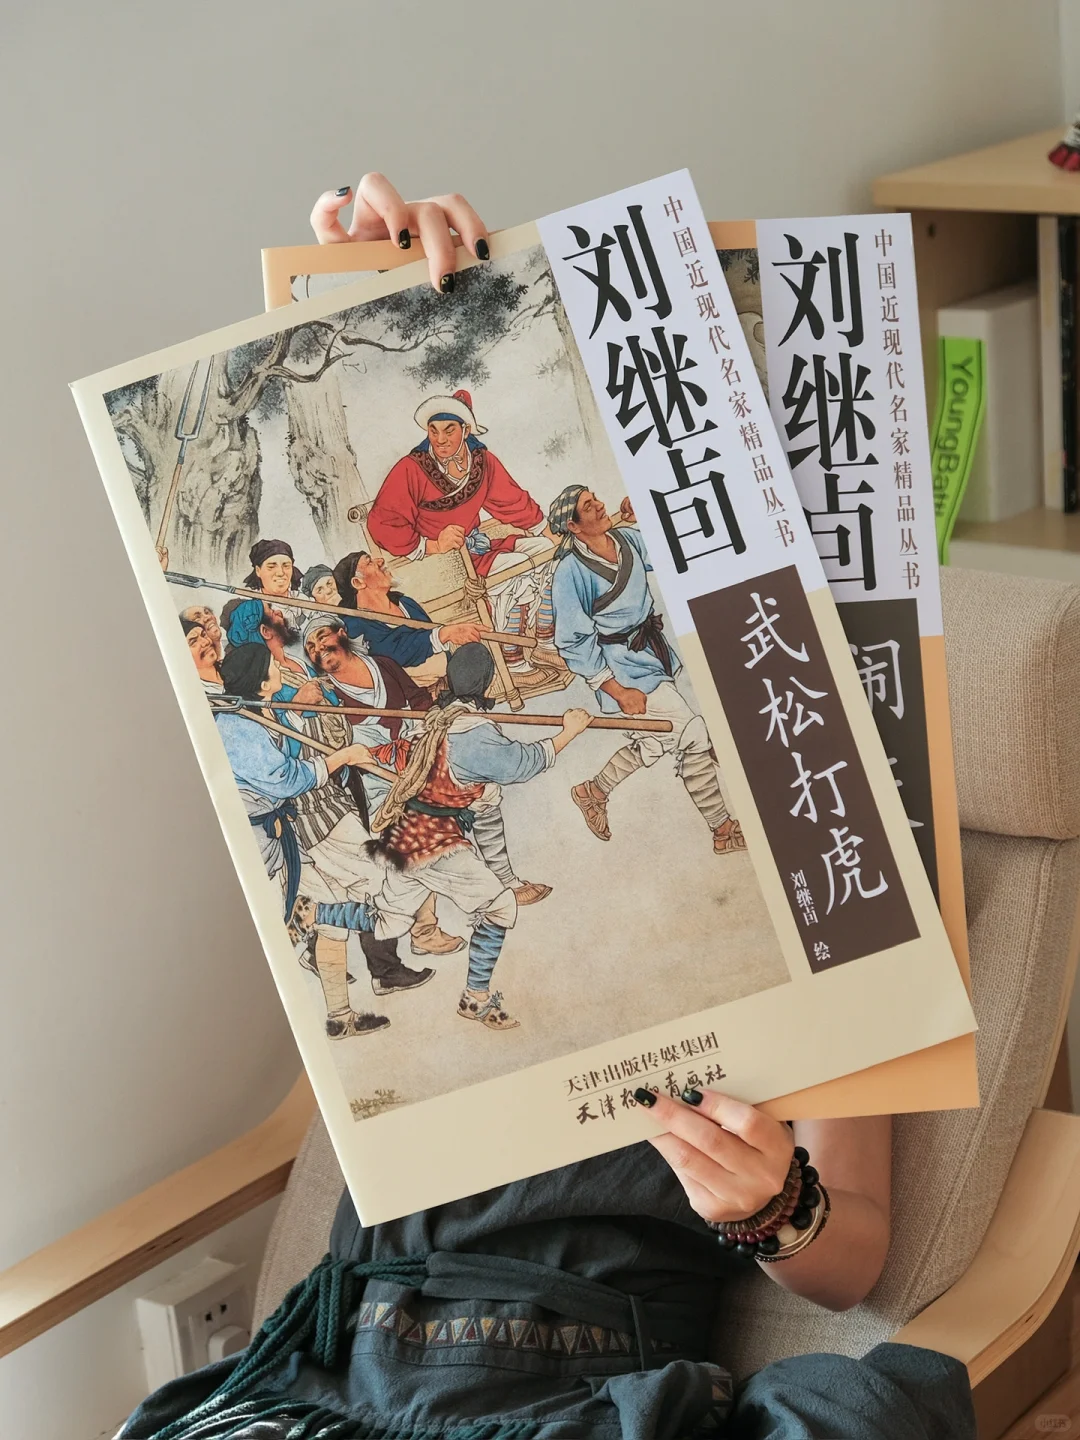 刘继卣
中国近现代名家精品丛书
武松打虎
刘继卣 绘
天津出版传媒集团
天津杨柳青画社
刘继卣
中国近现代名家精品丛书
闹
YoungBath
小红书